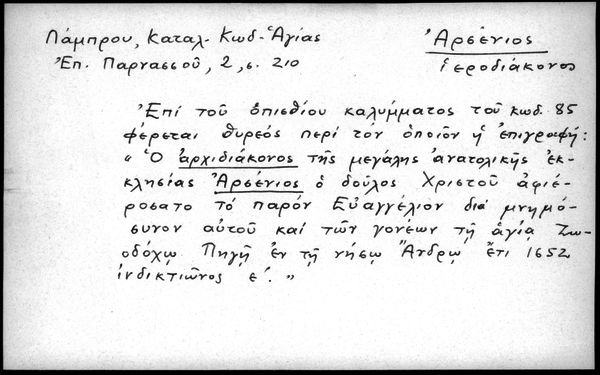 Λάμπρου, Καταλ. Κωδ. Ἁγίας
Ἐπ. Παρνασσοῦ, 2, σ. 210
Ἀρσένιος
ἱεροδιάκονος
Ἐπί τοῦ ὀπισθίου καλύμματος τοῦ κωδ. 85
φέρεται θυρεός περί τόν ὁποῖον ἡ ἐπιγραφή:
"Ὁ ἀρχιδιάκονος τῆς μεγάλης ἀνατολικῆς ἐκ-
κλησίας Ἀρσένιος ὁ δοῦλος Χριστοῦ ἀφιέ-
ροσατο τό παρόν Εὐαγγέλιον διά μνημό-
συνον αὐτοῦ καί τῶν γονέων τῇ ἁγίᾳ Ζω-
οδόχῳ Πηγῇ ἐν τῇ νήσῳ Ἄνδρῳ ἔτι 1652
ἰνδικτιῶνος ε΄. "